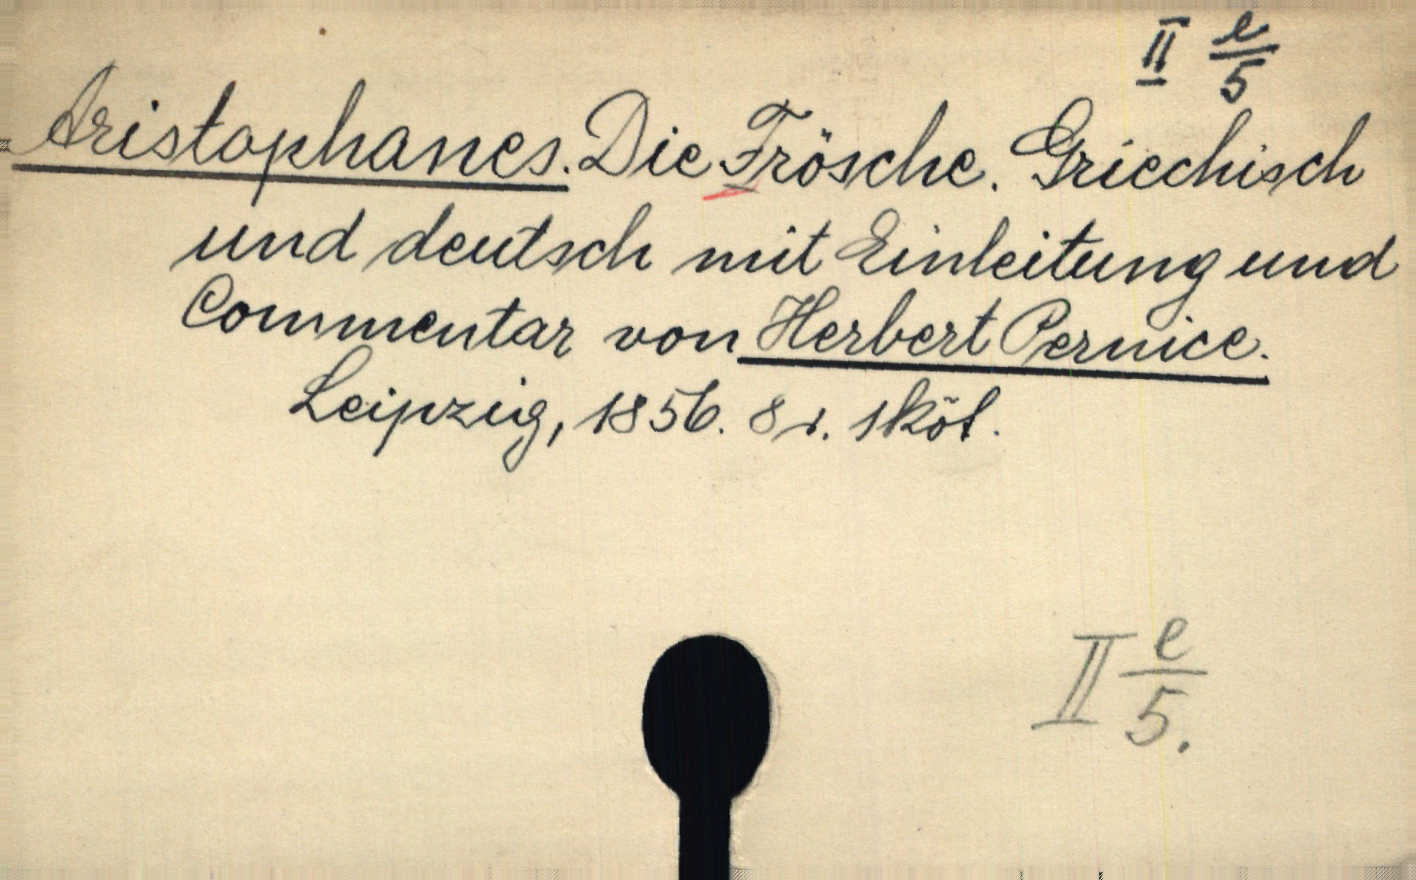 II e/5
Aristophanes. Die Frösche. Griechisch
und deutsch mit Einleitung und
Commentar von Herbert Pernice.
Leipzig, 1856. 8 r. 1 köt.
II e/5.